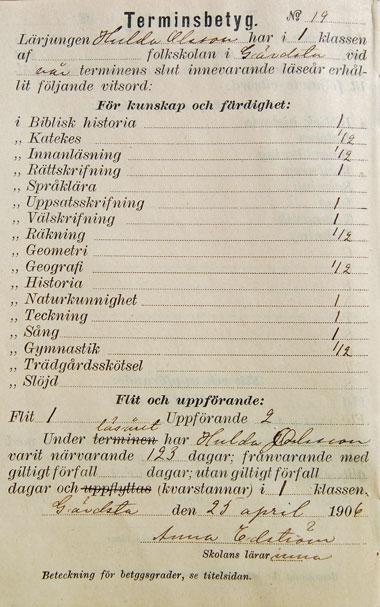 Terminsbetyg. № 19
Lärjungen Hulda Olsson har i 1 klassen
af folkskolan i Gårdsta vid
vår terminens slut innevarande läseår erhål-
lit följande vitsord:
För kunskap och färdighet:
i Biblisk historia 1
„ Katekes 1/2
„ Innanläsning 1/2
„ Rättskrifning 1
„ Språklära
„ Uppsatsskrifning 1
„ Välskrifning 1
„ Räkning 1/2
„ Geometri
„ Geografi 1/2
„ Historia
„ Naturkunnighet 1
„ Teckning 1
„ Sång 1
„ Gymnastik 1/2
„ Trädgårdsskötsel
„ Slöjd
Flit och uppförande:
Flit 1 Uppförande 2
läsåret
Under terminen har Hulda Olsson
varit närvarande 123 dagar; frånvarande med
giltigt förfall dagar; utan giltigt förfall
dagar och uppflyttas (kvarstannar) i 1 klassen.
Gårdsta den 23 april 1906
Anna Edström
Skolans lärarinna
Beteckning för betygsgrader, se titelsidan.